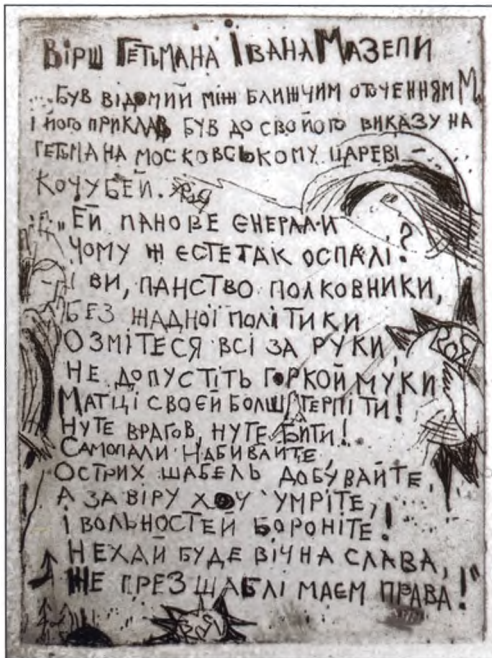 Вірш Гетьмана Івана Мазепи
...був відомий між ближчим оточенням М.
і його приклав був до свойого виказу на
гетьмана московському цареві –
Кочубей.
„Ей панове єнерали
чому ж єсте так оспалі?
І ви, панство полковники,
без жадної політики
озмітеся всі за руки,
не допустіть горкой муки
Матці своєй болш терпіти!
Нуте врагов, нуте бити!
Самопали набивайте,
острих шабель добувайте,
а за віру хоч умріте,
і вольностей бороніте!
Нехай буде вічна слава,
же през шаблі маєм права!"